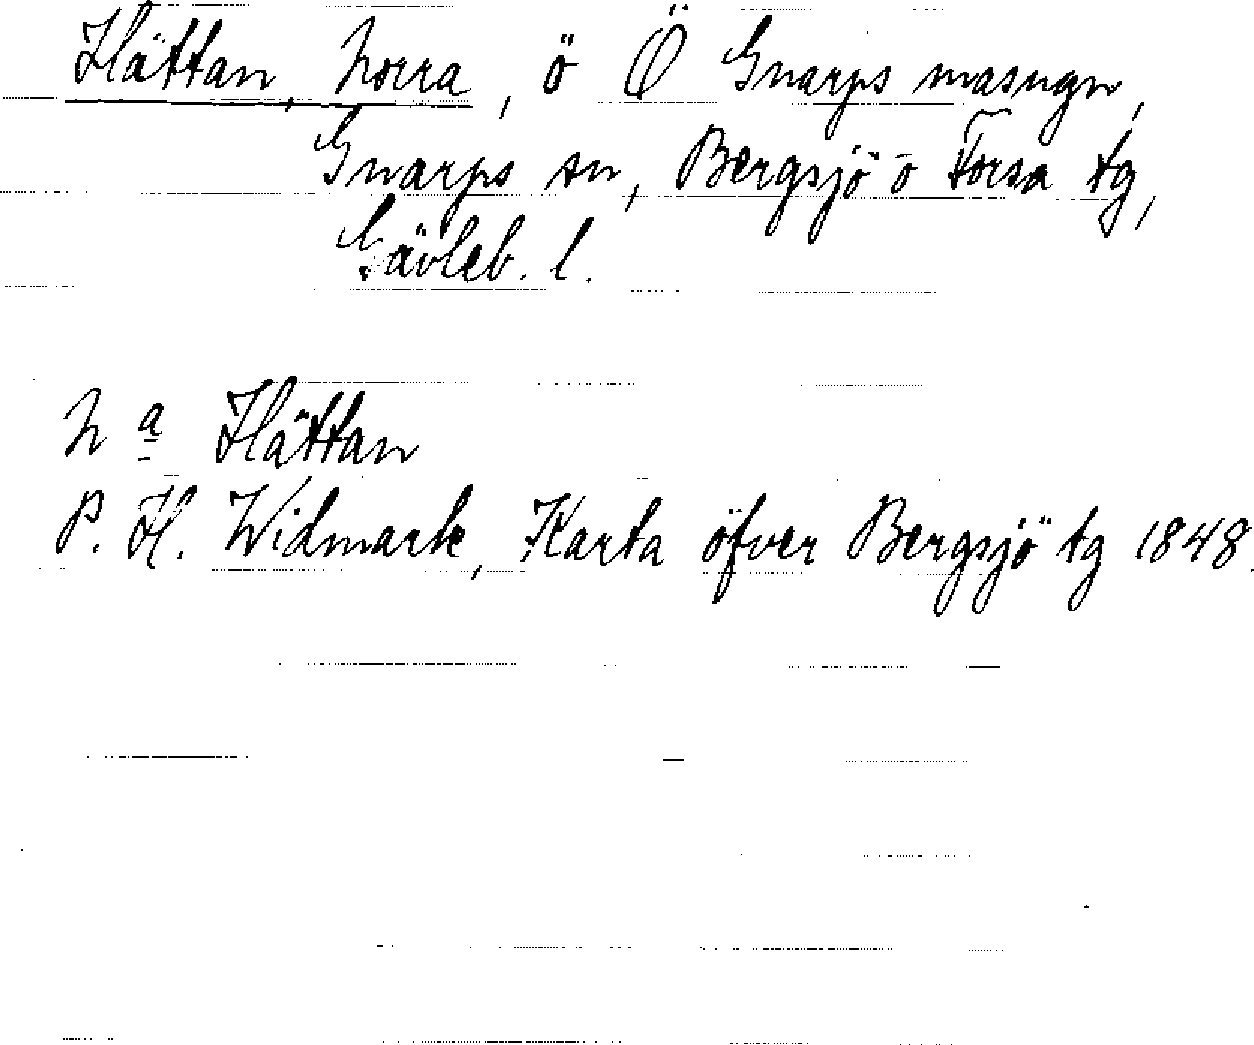 Hättan, Norra, ö Ö Gnarps masugn,
Gnarps sn, Bergsjö o Forsa tg,
Gävleb. l.
N a Hättan
P. H. Widmark, Karta öfver Bergsjö tg 1848.